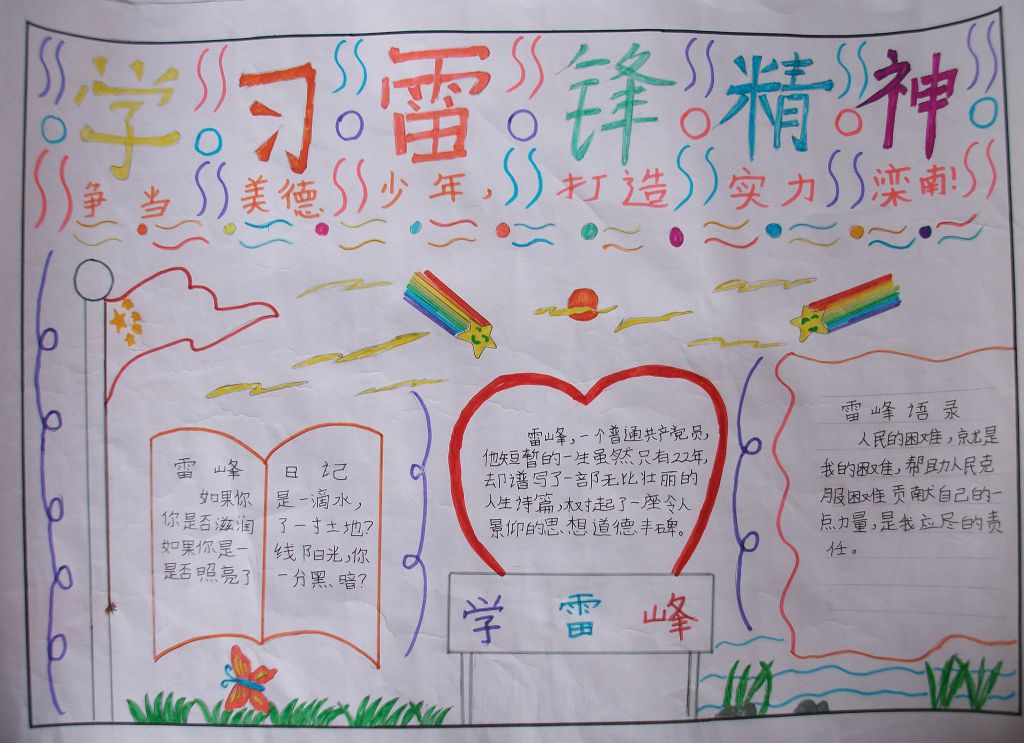 学习雷锋精神
争当美德少年，打造实力滦南！
雷峰日记
如果你是一滴水，
你是否滋润了一寸土地？
如果你是一线阳光，你
是否照亮了一分黑暗？
雷峰，一个普通共产党员，
他短暂的一生虽然只有22年，
却谱写了一部无比壮丽的
人生诗篇，树起了一座令人
景仰的思想道德丰碑。
学雷峰
雷峰语录
人民的困难，就是
我的困难，帮助人民克
服困难贡献自己的一
点力量，是我应尽的责
任。